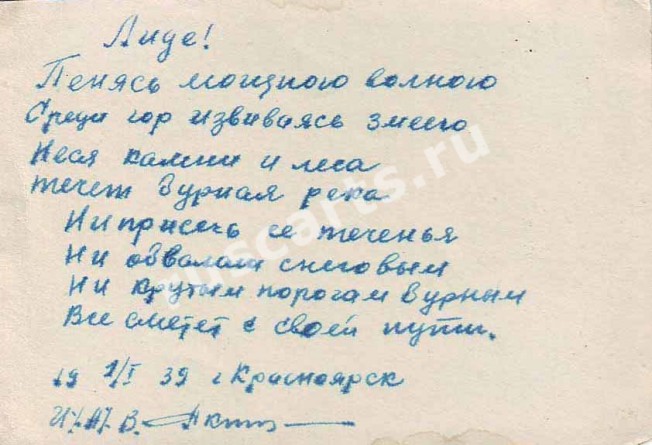 Лиде!
Пенясь мощною волною
Среди гор извиваясь змеею
Неся камни и леса
течет бурная река
Ни присечь ее теченья
Ни обвалам снеговым
Ни крутым порогам бурным
Все сметет с своей пути.
19 2/I 39 г Красноярск
ruscarts.ru